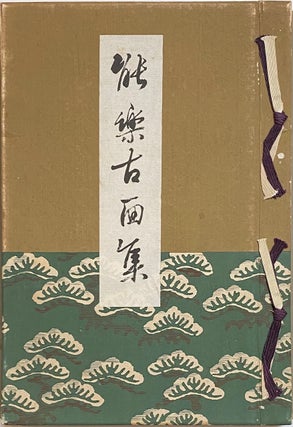 能楽古面集